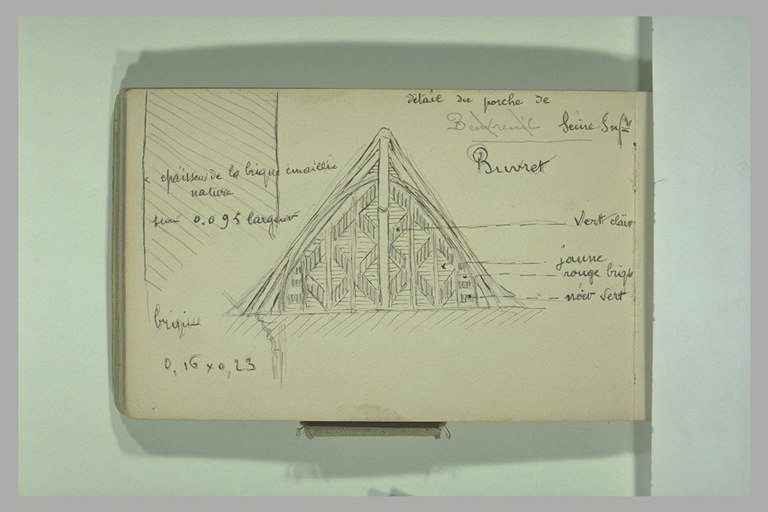 détail du porche de
Seine Infre
Buvret
épaisseur de la brique émaillée
nature
sur 0.095 largeur
vert clair
jaune
rouge briq
noir vert
brique
0,16 x 0,23